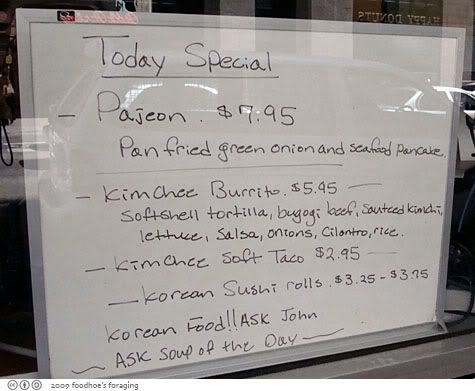 HAPPY DONUTS
Today Special
- Pajeon. $7.95
Pan fried green onion and seafood pancake.
- Kimchee Burrito. $5.95
Softshell tortilla, bugogi beef, sauteed kimchi,
lettuce, Salsa, onions, Cilantro, rice.
- Kimchee Soft Taco $2.95
- Korean Sushi rolls. $3.25 - $3.75
Korean Food!! ASK John
~ ASK Soup of the Day ~
2009 foodhoe's foraging